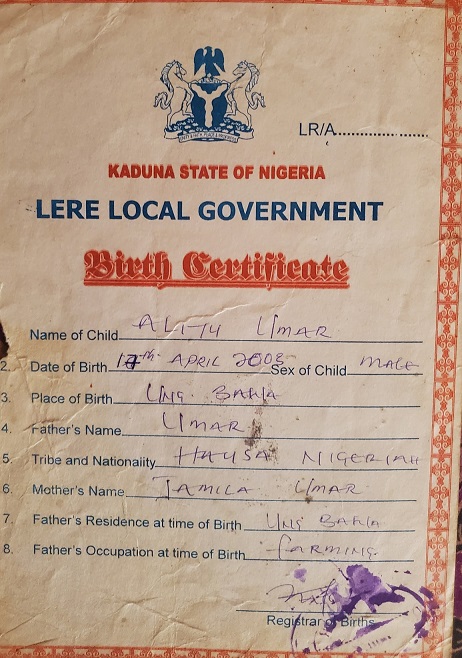 LR/A.....................
KADUNA STATE OF NIGERIA
LERE LOCAL GOVERNMENT
Birth Certificate
Name of Child ALIYU UMAR
2. Date of Birth 17th APRIL 2003 Sex of Child MALE
3. Place of Birth UNG. BAWA
4. Father's Name UMAR
5. Tribe and Nationality HAUSA NIGERIAN
6. Mother's Name JAMILA UMAR
7. Father's Residence at time of Birth UNG BAWA
8. Father's Occupation at time of Birth farming.
Registrar of Births